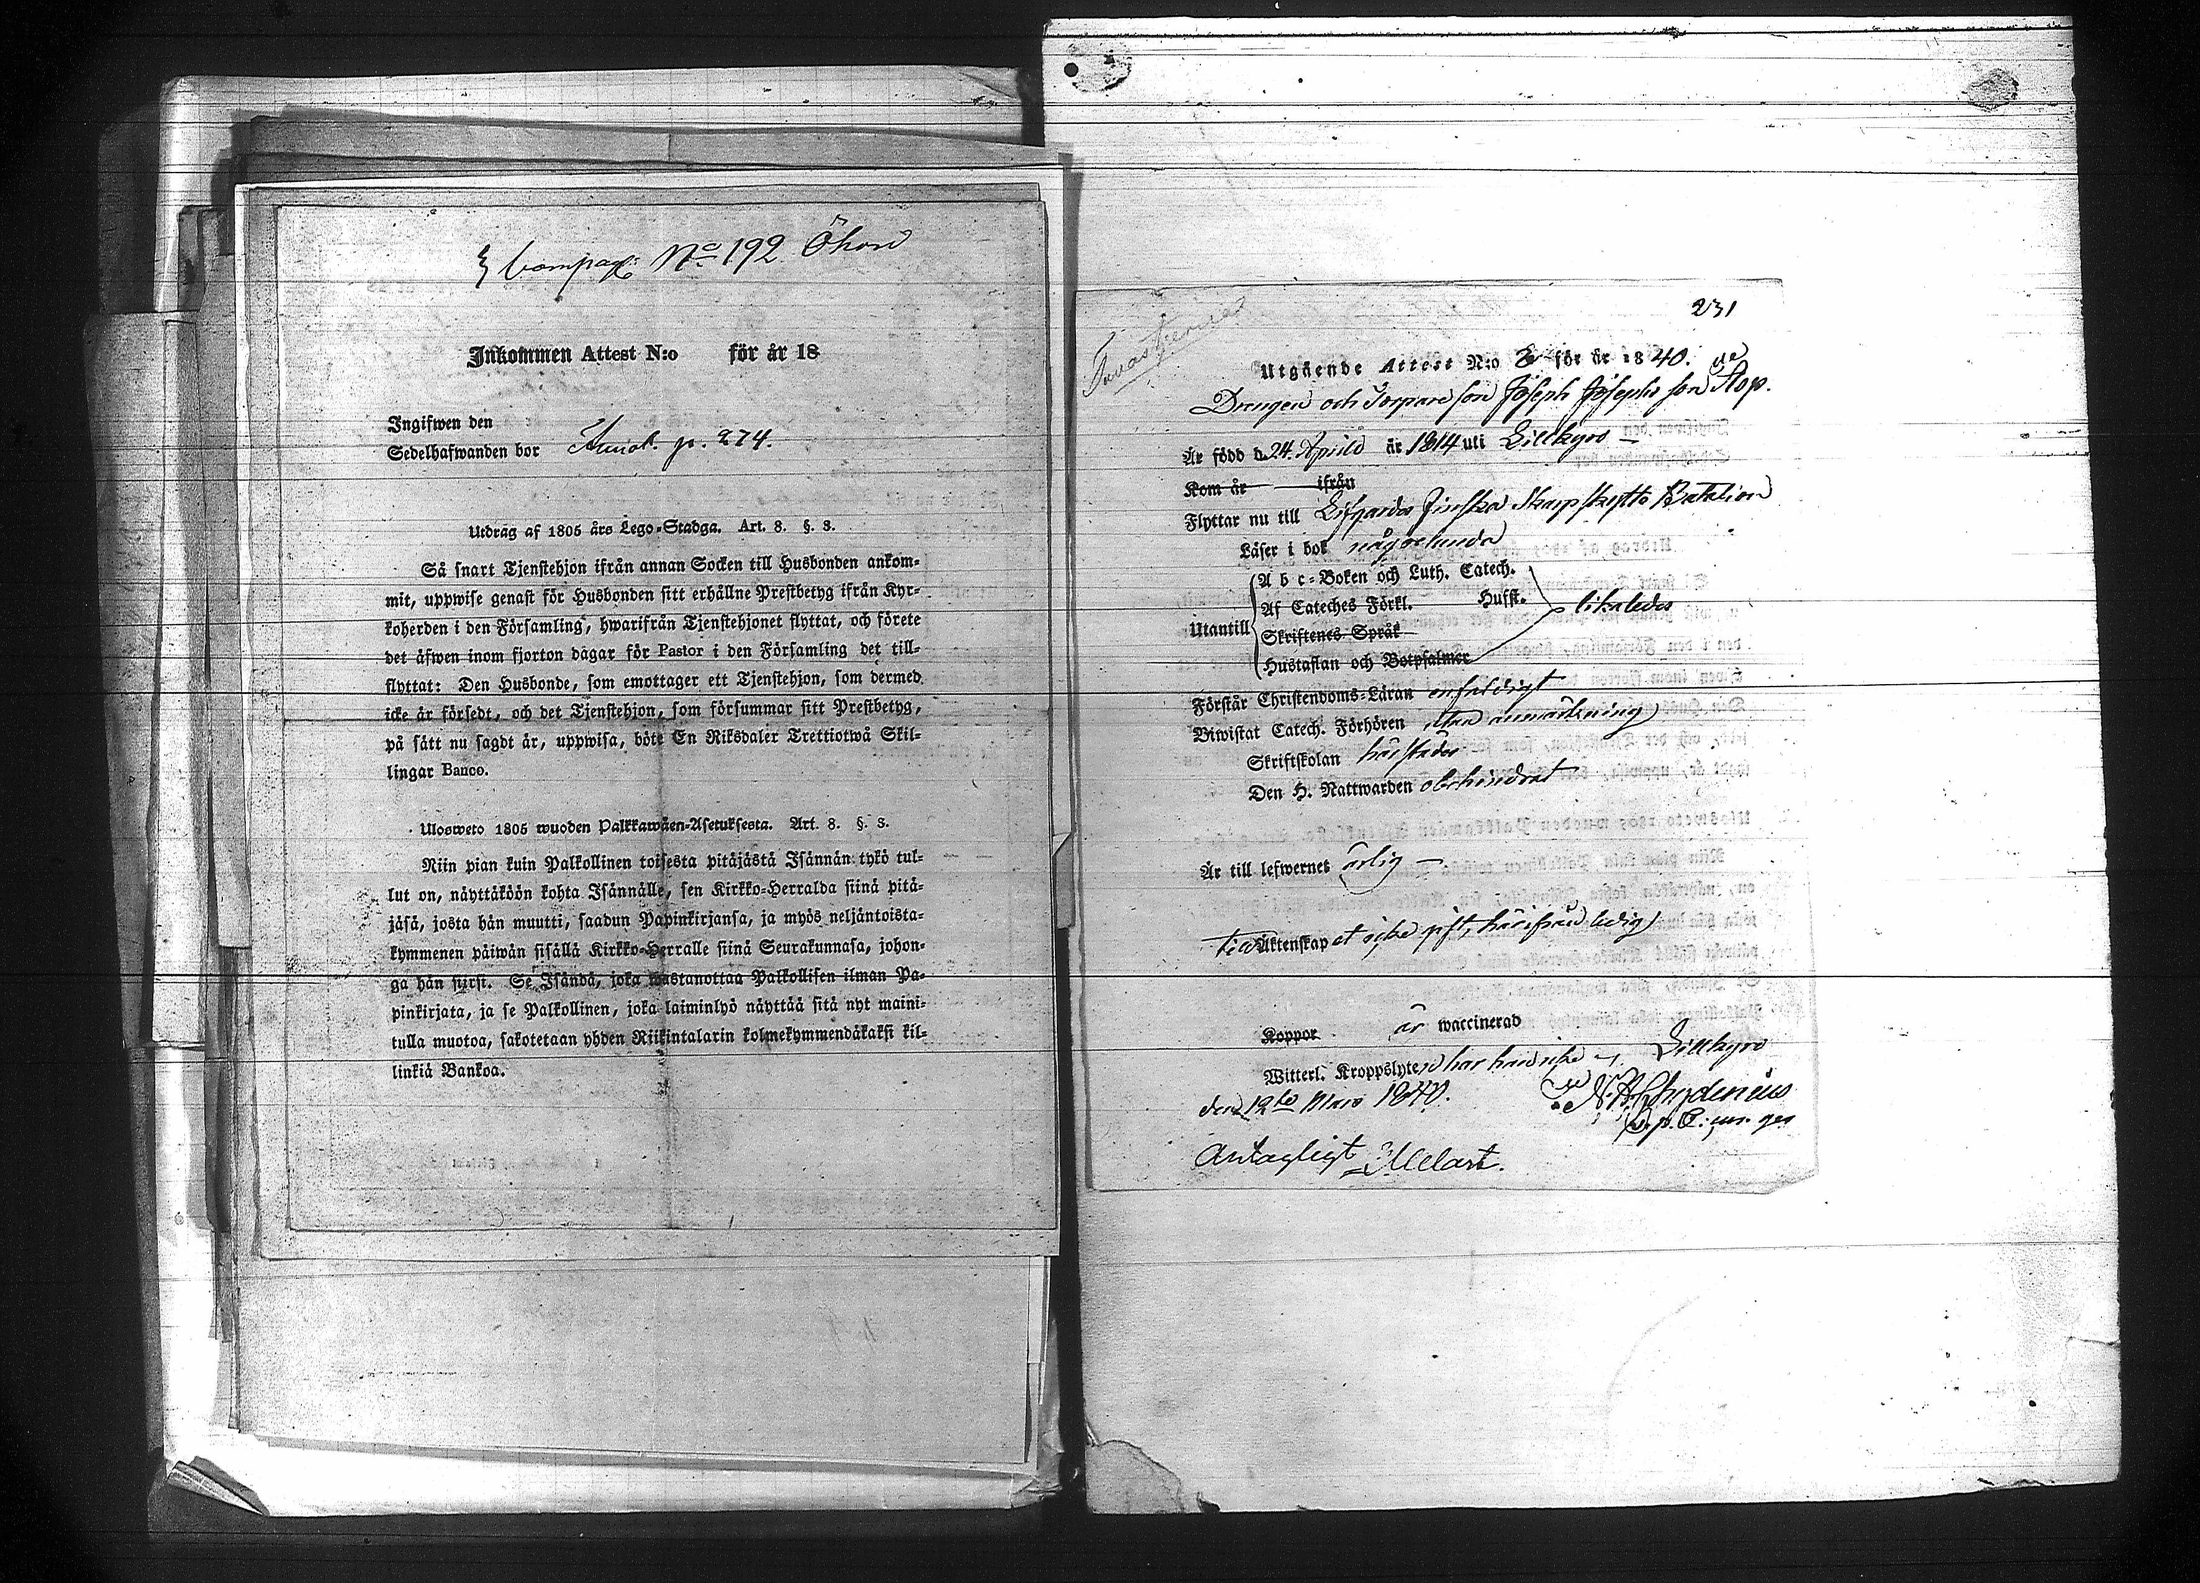 Compag: No 192 Öhon
Inkommen Attest N:o för år 18
Ingifwen den
Sedelhafwanden bor p. 274.
Utdrag af 1805 års Lego-Stadga. Art. 8. §. 3.
Så snart Tjenstehjon ifrån annan Socken till Husbonden ankom-
mit, uppwise genast för Husbonden sitt erhållne Prestbetyg ifrån Kyr-
koherden i den Församling, hwarifrån Tjenstehjonet flyttat, och förete
det äfwen inom fjorton dagar för Pastor i den Församling det till-
flyttat: Den Husbonde, som emottager ett Tjenstehjon, som dermed
icke är försedt, och det Tjenstehjon, som försummar sitt Prestbetyg,
på sätt nu sagdt är, uppwisa, böte En Riksdaler Trettiotwå Skil-
lingar Banco.
Ulosweto 1805 wuoden Palkkawäen-Asetuksesta. Art. 8. §. 3.
Niin pian kuin Palkollinen toisesta pitäjästä Isännän tykö tul-
lut on, näyttäköön kohta Isännälle, sen Kirkko-Herralda siinä pitä-
jäsä, josta hän muutti, saadun Papinkirjansa, ja myös neljäntoista-
kymmenen päiwän sisällä Kirkko-Herralle siinä Seurakunnasa, johon-
ga hän siirsi. Se Isändä, joka wastanottaa Palkollisen ilman Pa-
pinkirjata, ja se Palkollinen, joka laiminlyö näyttää sitä nyt maini-
tulla muotoa, sakotetaan yhden Riikintalarin kolmekymmendäkaksi kil-
linkiä Bankoa.
231
Utgående Attest N:o för år 1840.
Drengen och Torpare son Joseph Josephs son Rop.
Är född d. 24. Aprild år 1814 uti Lillkyro
Kom år ifrån
Flyttar nu till Lifgardes Finska Skarpskytte Batalion
Läser i bok någorlunda
A b c-Boken och Luth. Catech.
Af Cateches Förkl. Husft.
Utantill likaledes
Skriftenes Språk
Hustaflan och Botpsalmer
Förstår Christendoms-Läran enfaldigt
Biwistat Catech. Förhören utan anmärkning
Skriftskolan härstädes
Den H. Nattwarden obehindrat
Är till lefwernet ärlig
Till Äktenskap et icke härifrån ledig
Koppor är waccinerad
Witterl. Kroppslyten har han icke Lillkyro
den 12te Mars 1840. N. H. Chydenius
Antagligt Melart.